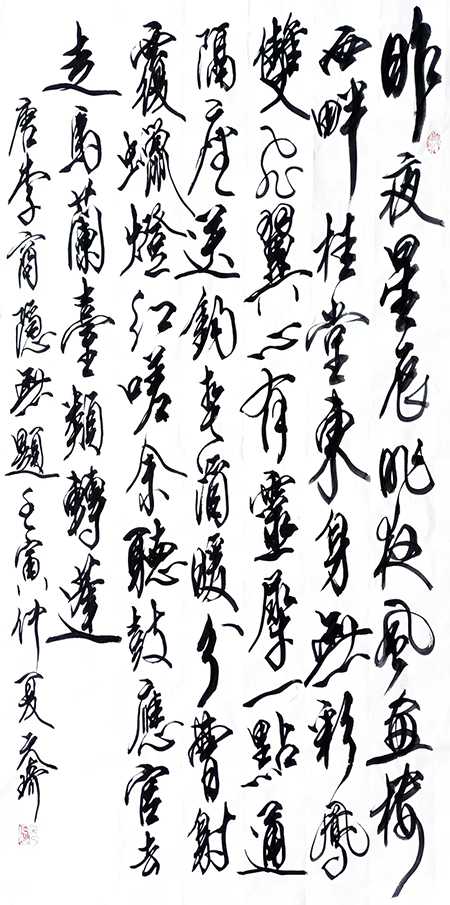 昨夜星辰昨夜風畫樓
西畔桂堂東身無彩鳳
雙飛翼心有靈犀一點通
隔座送鉤春酒暖分曹射
覆蠟燈紅嗟余聽鼓應官去
走馬蘭臺類轉蓬
唐李商隱無題壬寅仲夏